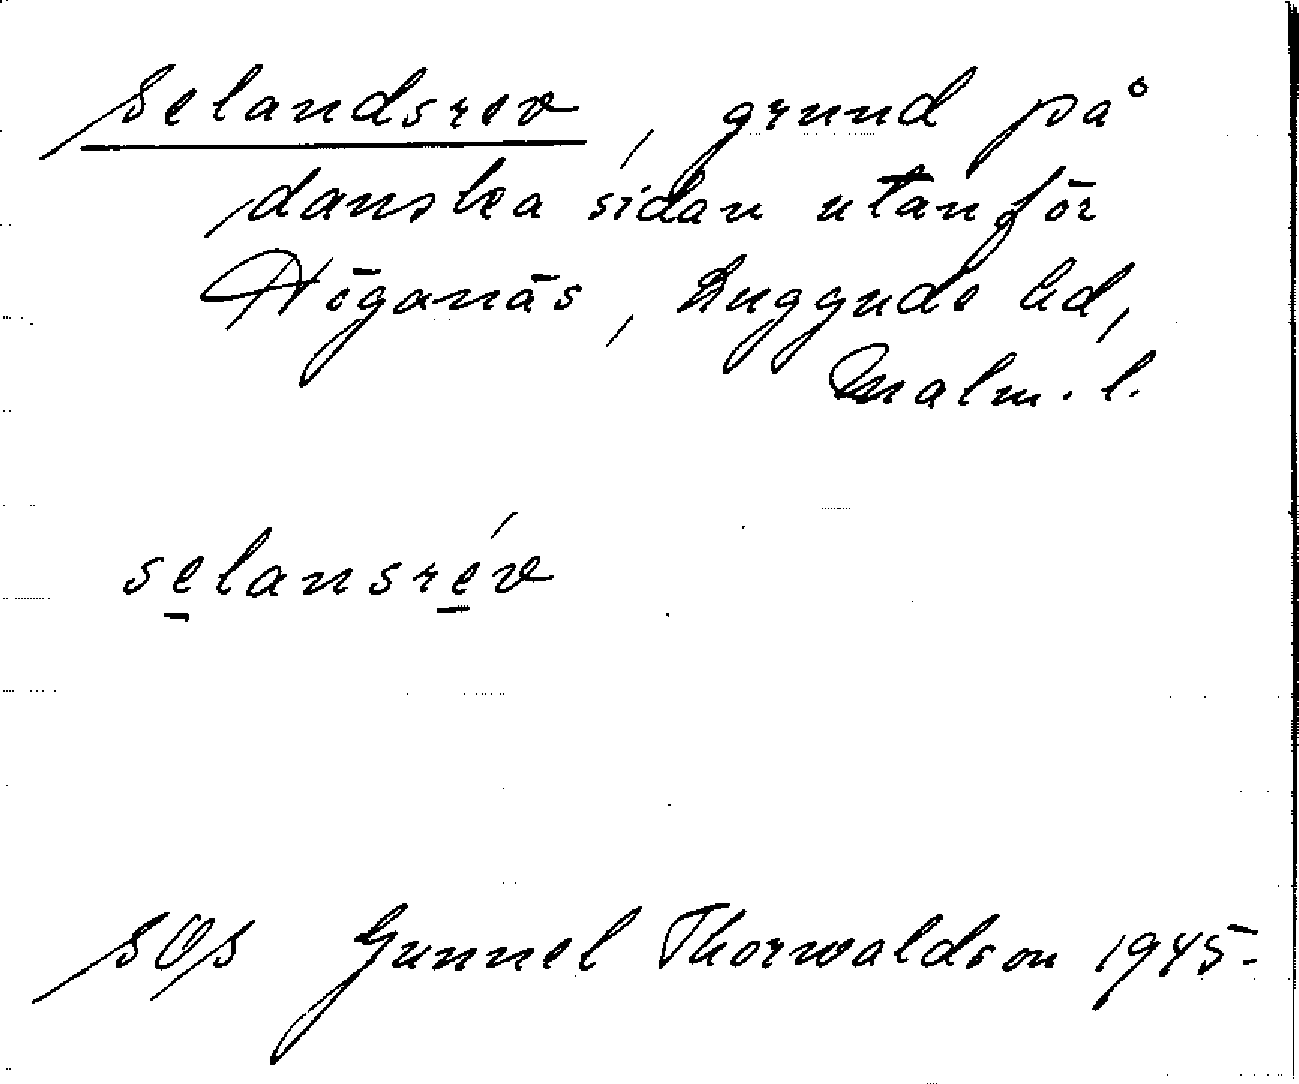 Selandsrev, grund på
danska sidan utanför
Höganäs, Luggude hd,
Malm. l.
selansrév
SOS Gunnel Thorwaldson 1945